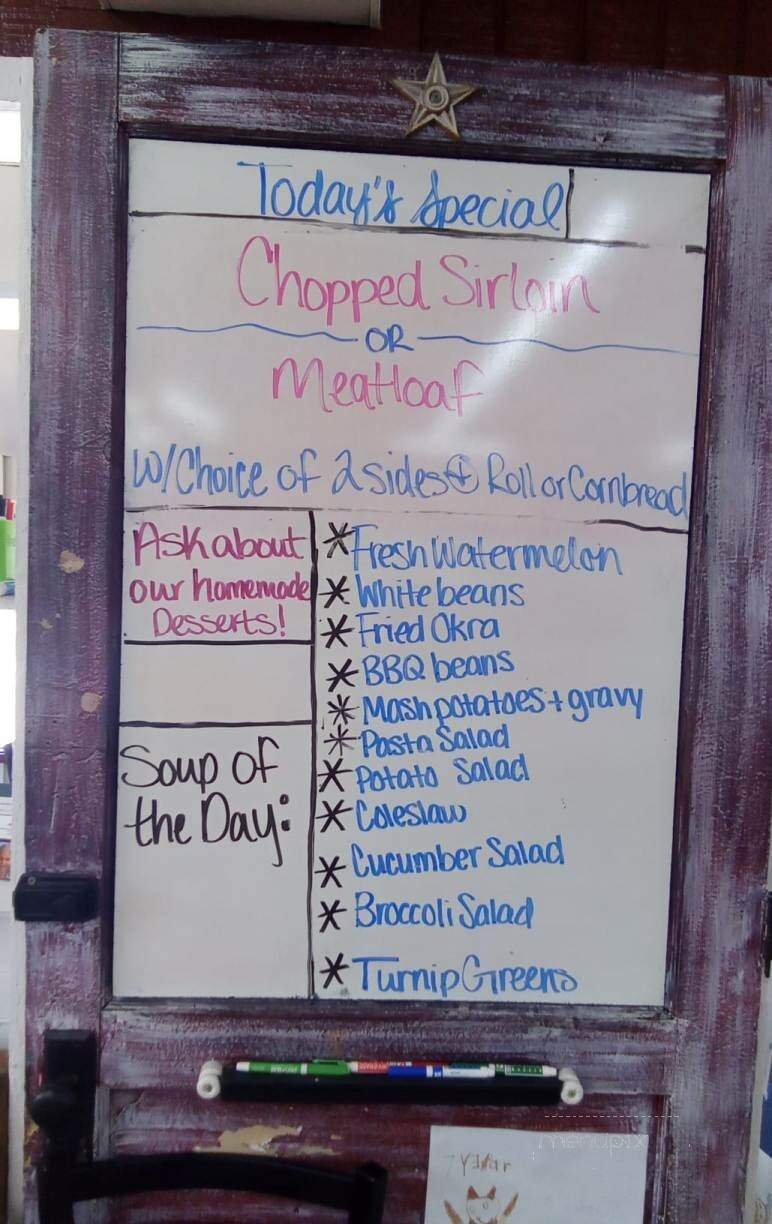 Today's Special
Chopped Sirloin
OR
Meatloaf
W/Choice of 2 sides + Roll or Cornbread
Ask about
our homemade
Desserts!
Soup of
the Day:
* Fresh Watermelon
* White beans
* Fried Okra
* BBQ beans
* Mash potatoes + gravy
* Pasta Salad
* Potato Salad
* Coleslaw
* Cucumber Salad
* Broccoli Salad
* Turnip Greens
menupix